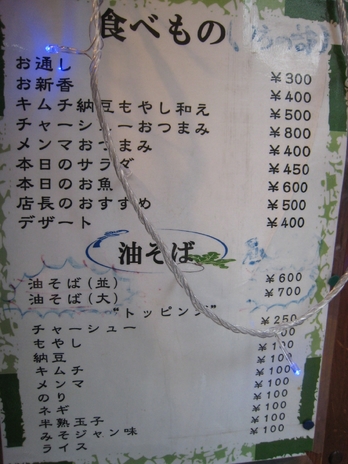 食べもの
お通し ¥300
お新香 ¥400
キムチ納豆もやし和え ¥500
チャーシューおつまみ ¥800
メンマおつまみ ¥400
本日のサラダ ¥450
本日のお魚 ¥600
店長のおすすめ ¥500
デザート ¥400
油そば
油そば(並) ¥600
油そば(大) ¥700
"トッピング"
チャーシュー ¥250
もやし
納豆 ¥100
キムチ ¥100
メンマ ¥100
のり ¥100
ネギ ¥100
半熟玉子 ¥100
みそジャン味 ¥100
ライス ¥100